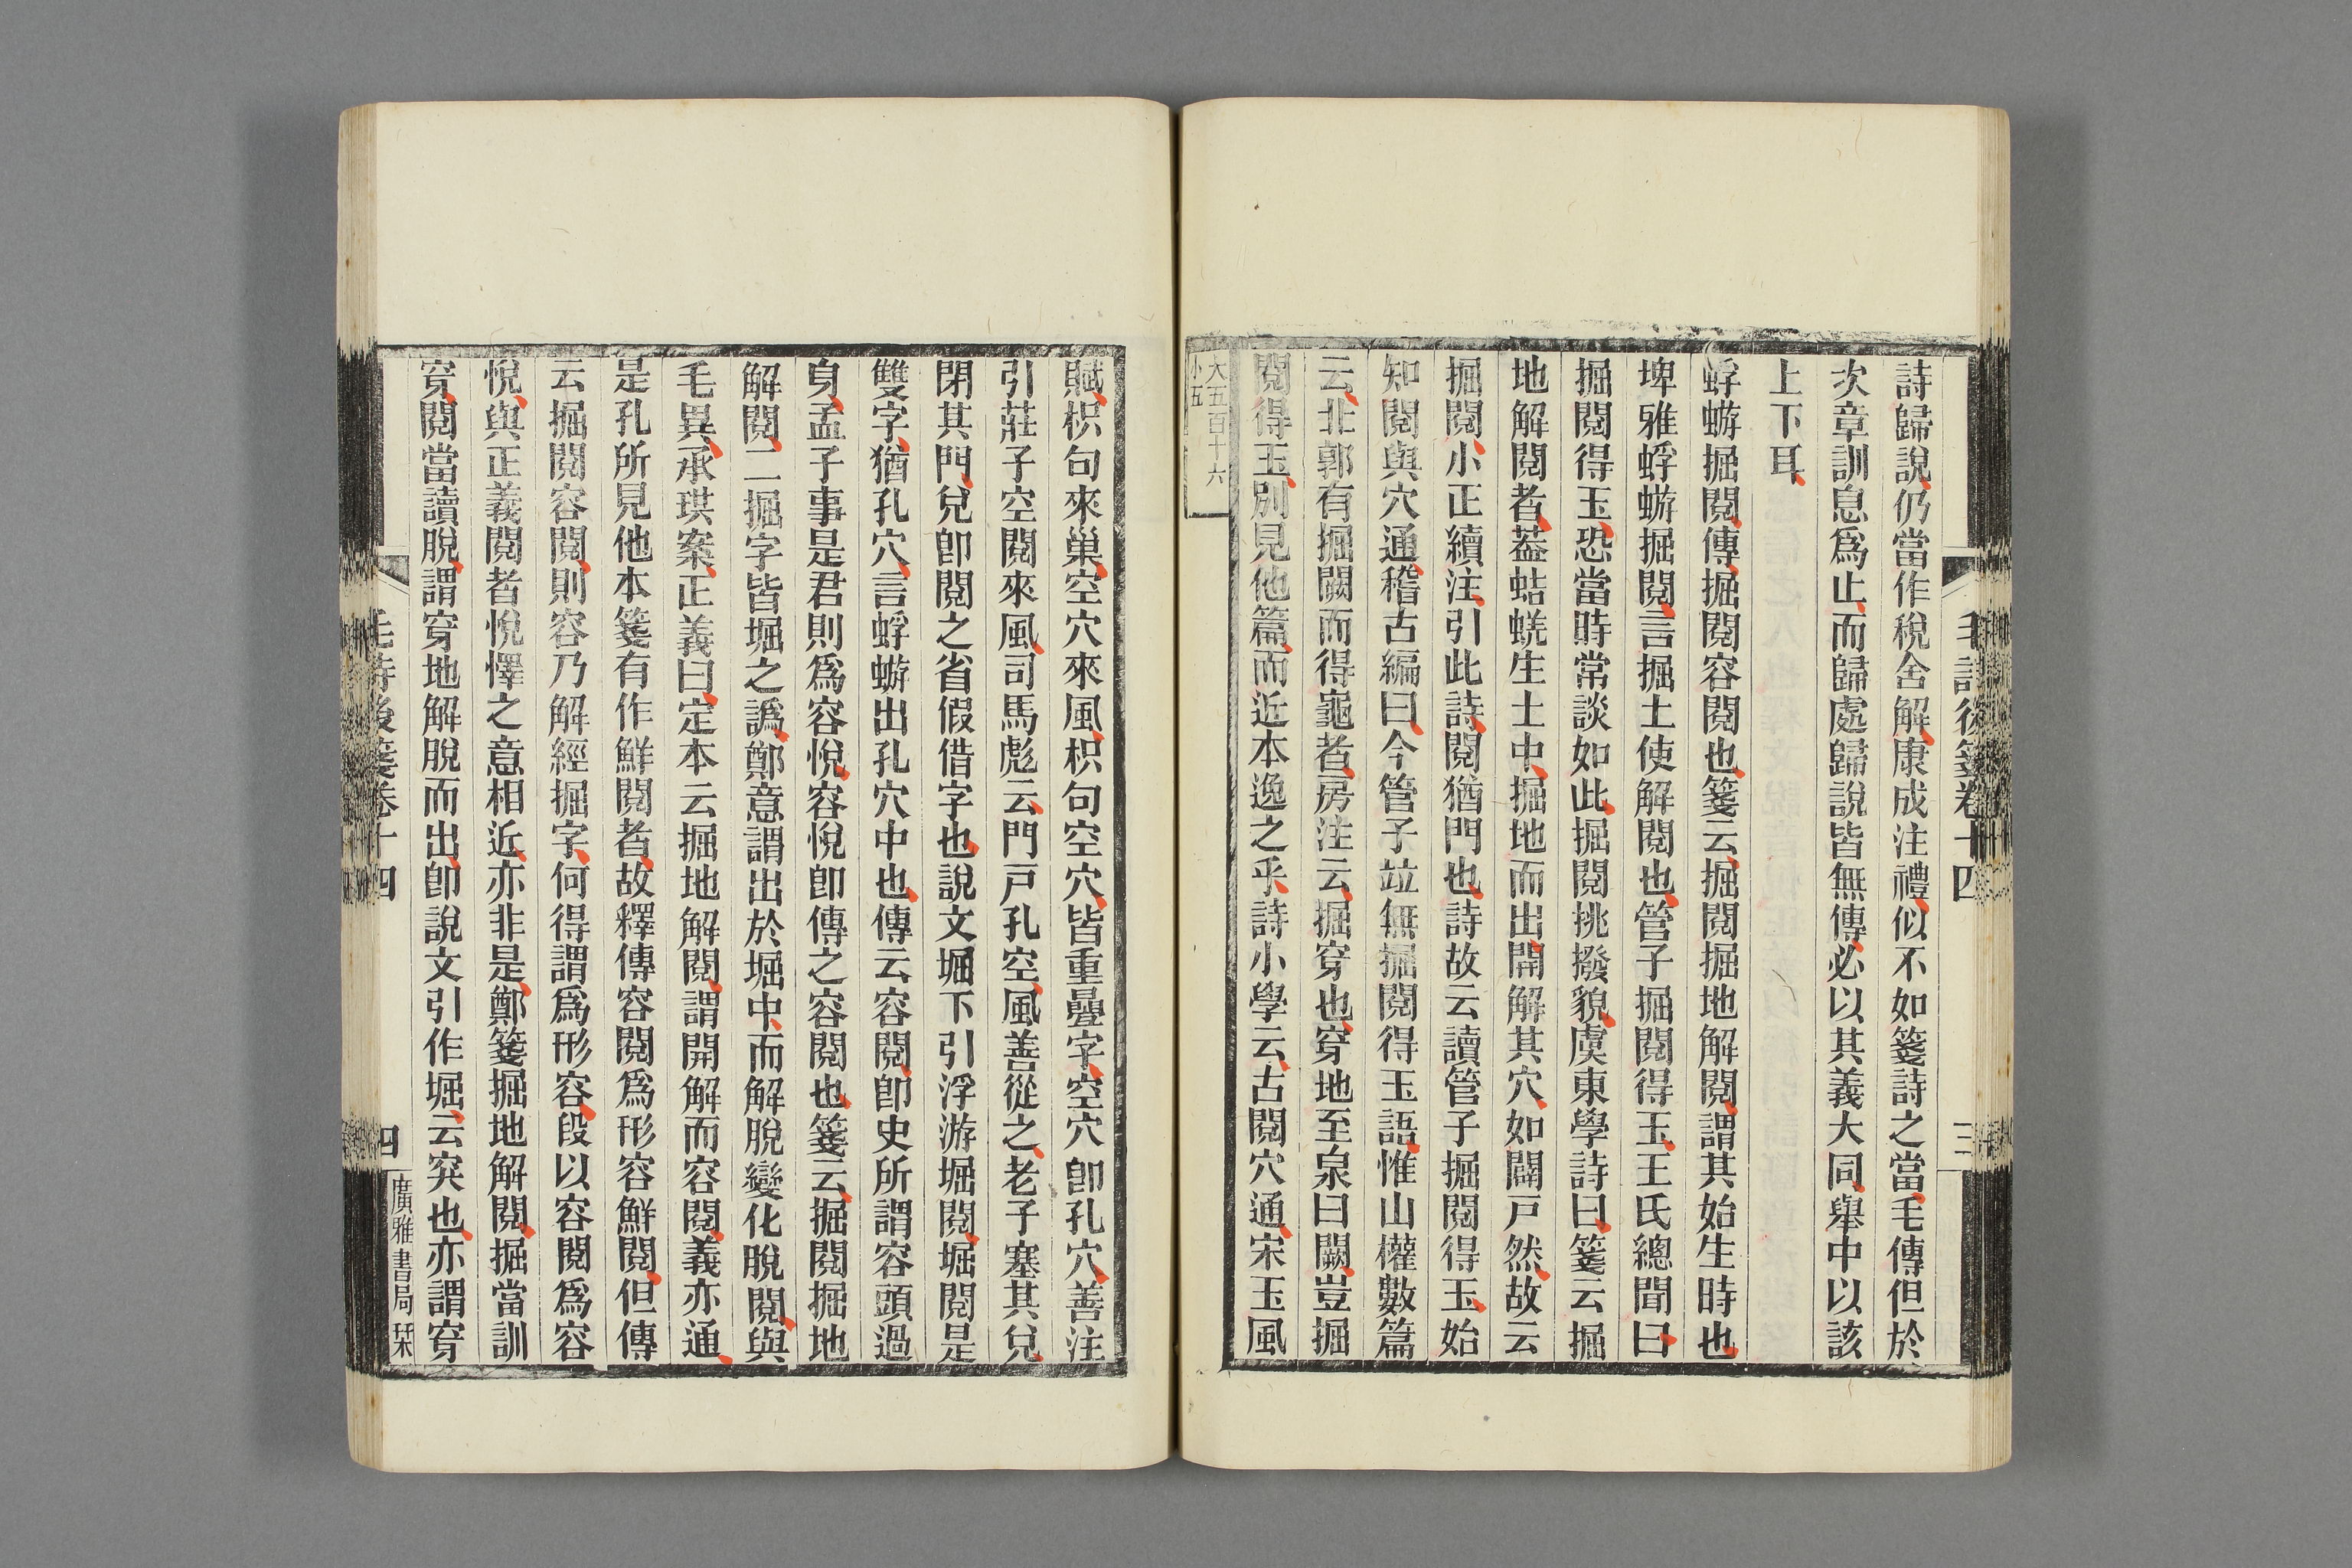 毛詩後箋卷十四
三
詩歸說仍當作稅舍解康成注禮似不如箋詩之當毛傳但於
次章訓息爲止而歸處歸說皆無傳必以其義大同舉中以該
上下耳
蜉蝣掘閱傳掘閱容閱也箋云掘閱掘地解閱謂其始生時也
埤雅蜉蝣掘閱言掘土使解閱也管子掘閱得玉王氏總聞曰
掘閱得玉恐當時常談如此掘閱挑撥貌虞東學詩曰箋云掘
地解閱者葢蛣蜣生土中掘地而出開解其穴如闢戸然故云
掘閱小正續注引此詩閱猶門也詩故云讀管子掘閱得玉始
知閱與穴通稽古編曰今管子竝無掘閱得玉語惟山權數篇
云北郭有掘闕而得龜者房注云掘穿也穿地至泉曰闕豈掘
閱得玉別見他篇而近本逸之乎詩小學云古閱穴通宋玉風
大五百十六
小五
賦枳句來巢空穴來風枳句空穴皆重疊字空穴卽孔穴善注
引莊子空閱來風司馬彪云門戸孔空風善從之老子塞其兌
閉其門兌卽閱之省假借字也說文堀下引浮游堀閱堀閱是
雙字猶孔穴言蜉蝣出孔穴中也傳云容閱卽史所謂容頭過
身孟子事是君則爲容悅容悅卽傳之容閱也箋云掘閱掘地
解閱二掘字皆堀之譌鄭意謂出於堀中而解脫變化脫閱與
毛異承珙案正義曰定本云掘地解閱謂開解而容閱義亦通
是孔所見他本箋有作鮮閱者故釋傳容閱爲形容鮮閱但傳
云掘閱容閱則容乃解經掘字何得謂爲形容段以容閱爲容
悅與正義閱者悅懌之意相近亦非是鄭箋掘地解閱掘當訓
穿閱當讀脫謂穿地解脫而出卽說文引作堀云突也亦謂穿
毛詩後箋卷十四
四
廣雅書局栞